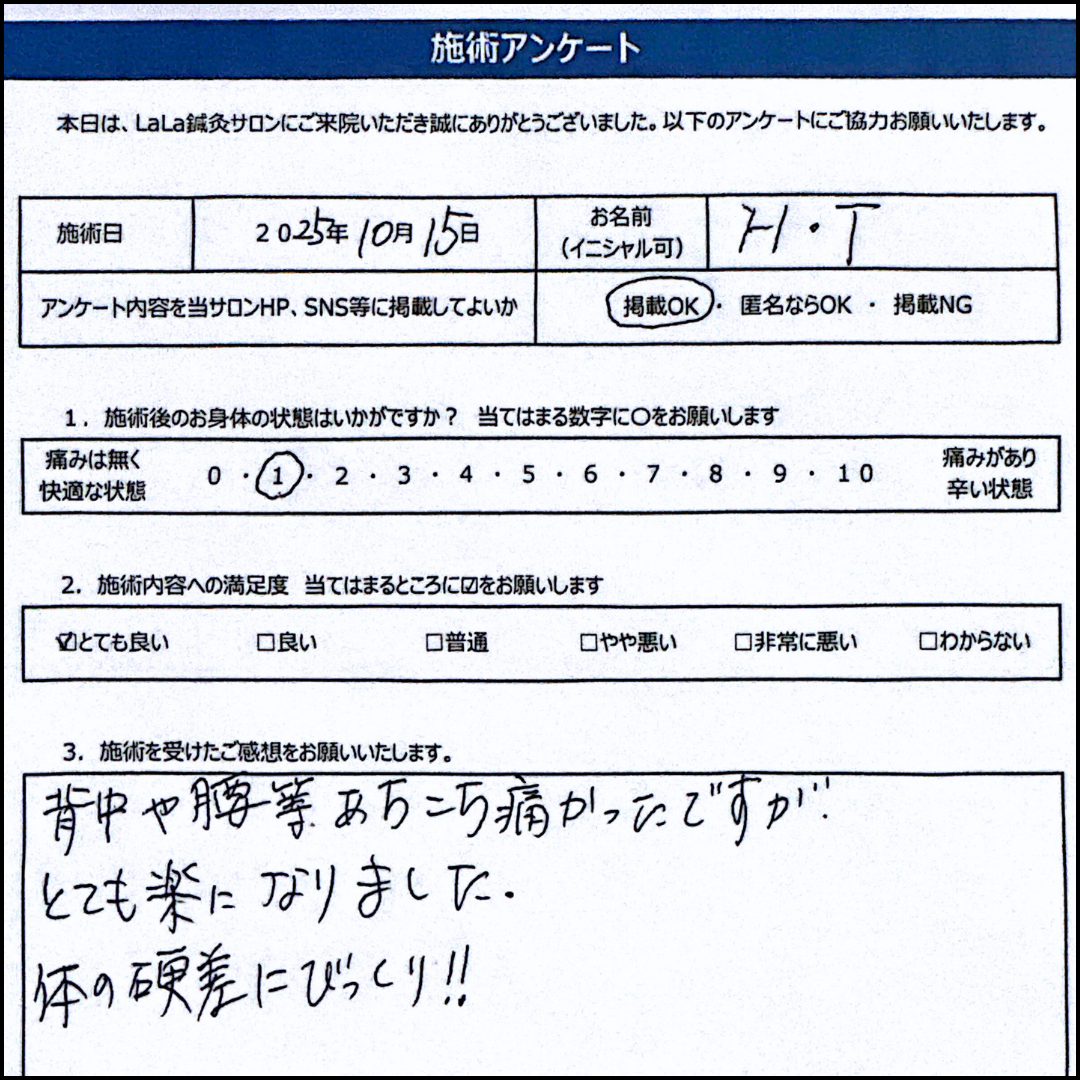 施術アンケート
本日は、LaLa鍼灸サロンにご来院いただき誠にありがとうございました。以下のアンケートにご協力お願いいたします。
施術日 2025年10月15日 お名前（イニシャル可） H・T
アンケート内容を当サロンHP、SNS等に掲載してよいか 掲載OK ・ 匿名ならOK ・ 掲載NG
1. 施術後のお身体の状態はいかがですか？ 当てはまる数字に〇をお願いします
痛みは無く快適な状態 0 ・ 1 ・ 2 ・ 3 ・ 4 ・ 5 ・ 6 ・ 7 ・ 8 ・ 9 ・ 10 痛みがあり辛い状態
2. 施術内容への満足度 当てはまるところに☑をお願いします
☑とても良い □良い □普通 □やや悪い □非常に悪い □わからない
3. 施術を受けたご感想をお願いいたします。
背中や腰等あちこち痛かったですが
とても楽になりました.
体の硬差にびっくり!!